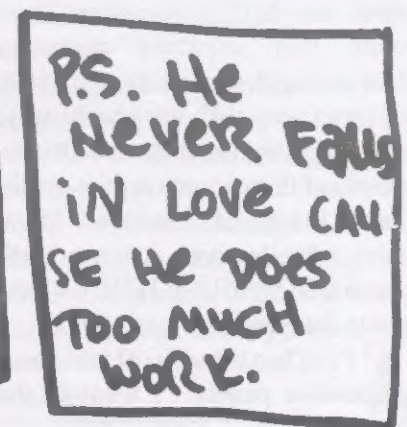 PS. He
Never Falls
iN Love CAU
SE He DOES
TOO MUCH
WORK.